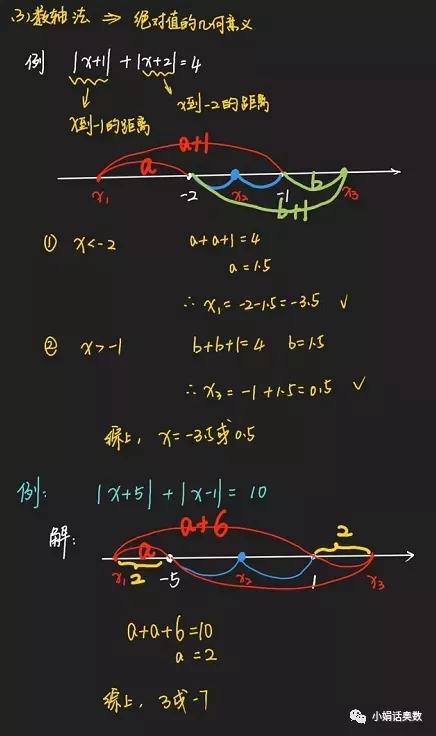 (3)数轴法 ⇒ 绝对值的几何意义
例 |x+1| + |x+2| = 4
x到-2的距离
x到-1的距离
a+1
a b
x₁ -2 x₂ -1 x₃
b+1
① x<-2 a+a+1=4
a=1.5
∴ x₁=-2-1.5=-3.5 ✓
② x>-1 b+b+1=4 b=1.5
∴ x₃=-1+1.5=0.5 ✓
综上, x=-3.5或0.5
例: |x+5| + |x-1| = 10
解: a+6 2
a
x₁ 2 -5 x₂ 1 x₃
a+a+6=10
a=2
综上, 3或-7
小娟话奥数